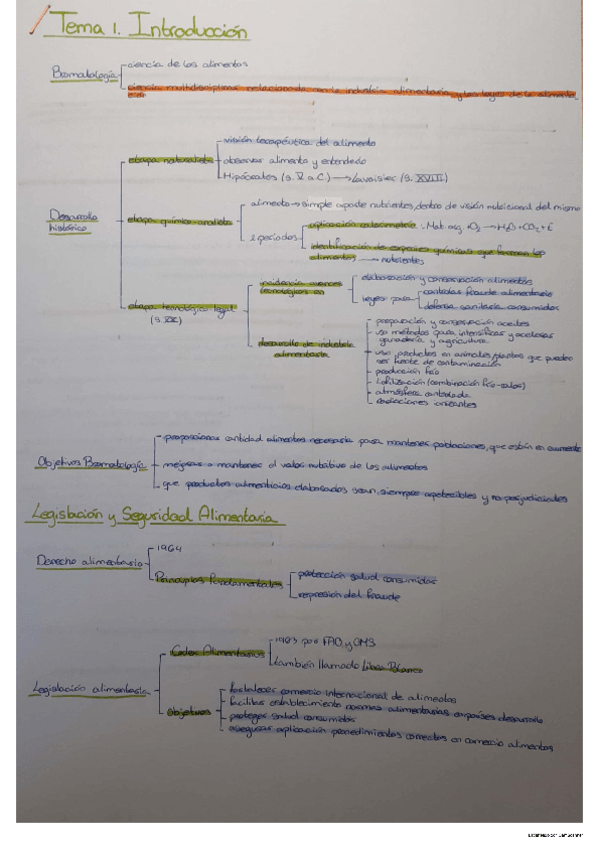 Tema 1. Introducción
Bromatología
ciencia de los alimentos
ciencia multidisciplinar relacionada con la industria alimentaria y las leyes de la
Desarrollo
histórico
etapa naturalista
visión terapéutica del alimento
observar alimento y entenderlo
Hipócrates (s. V a.C.) → Lavoisier (s. XVIII)
etapa químico-analista
alimento → simple aporte nutrientes, dentro de visión nutricional del mismo
2 periodos
aplicación calorimetría: Mat. org. + O₂ → H₂O + CO₂ + E
identificación de especies químicas que forman los
alimentos → nutrientes
etapa tecnológico legal
(s. XX)
incidencia avances
tecnológicos en
elaboración y conservación alimentos
leyes para
controlar fraude alimentario
defensa sanitaria consumidores
desarrollo de industria
alimentaria
preparación y conservación aceites
uso métodos para intensificar y acelerar
ganadería y agricultura
uso productos en animales/plantas que pueden
ser fuente de contaminación
producción frío
liofilización (combinación frío-calor)
atmósfera controlada
radiaciones ionizantes
Objetivos Bromatología
proporcionar cantidad alimentos necesaria para mantener poblaciones, que están en aumento
mejorar o mantener el valor nutritivo de los alimentos
que productos alimenticios elaborados sean siempre apetecibles y no perjudiciales
Legislación y Seguridad Alimentaria
Derecho alimentario
1964
Principios fundamentales
protección salud consumidor
represión del fraude
Legislación alimentaria
Codex Alimentarius
1963 por FAO y OMS
también llamado Libro Blanco
Objetivos
fortalecer comercio internacional de alimentos
facilitar establecimiento normas alimentarias en países desarrollo
proteger salud consumidor
asegurar aplicación procedimientos correctos en comercio alimentos
Escaneado con CamScanner